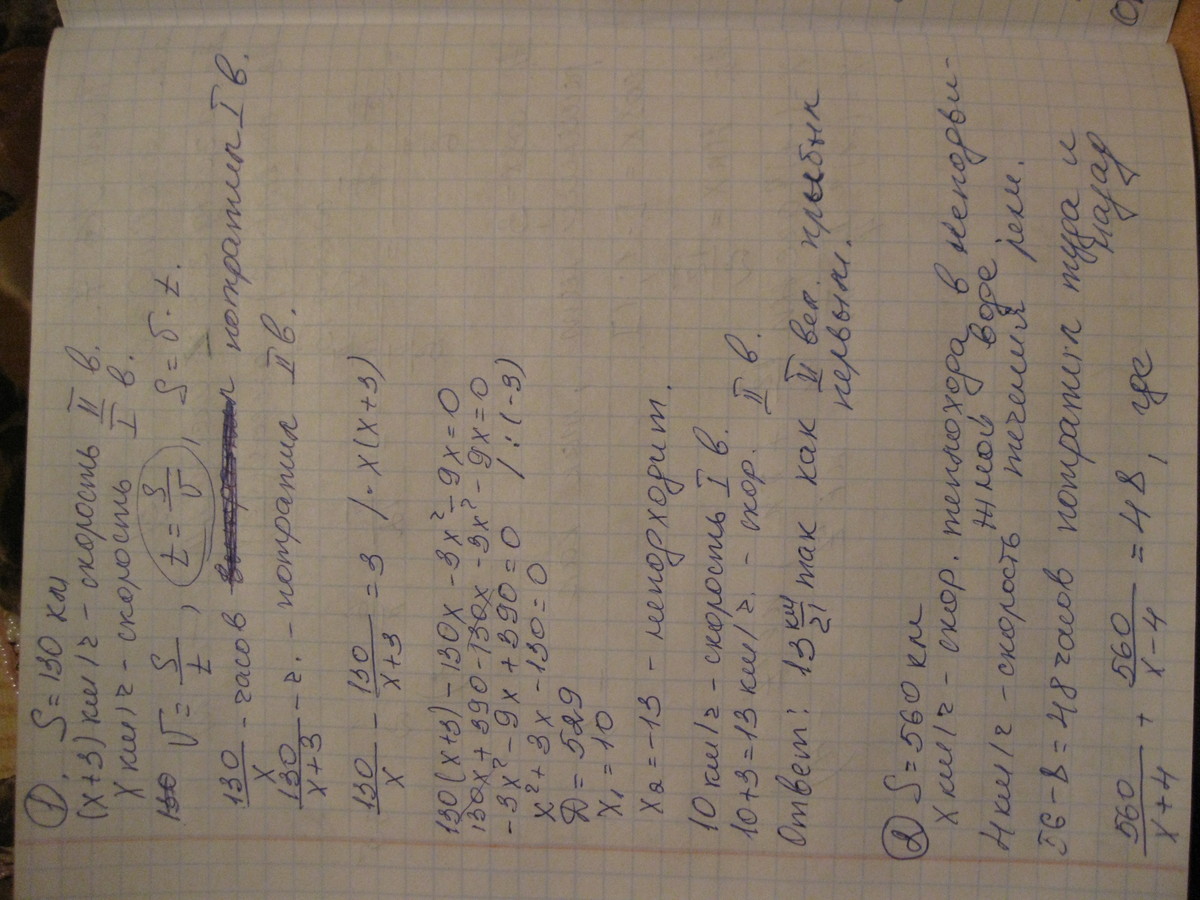 1. S=130 км
(x+3) км/ч - скорость II в.
x км/ч - скорость I в.
V = S/t, t = S/V, S = V · t.
130/x - часов потратил I в.
130/x+3 - ч. - потратил II в.
130/x - 130/x+3 = 3 / · x(x+3)
130(x+3) - 130x - 3x² - 9x = 0
130x + 390 - 130x - 3x² - 9x = 0
-3x² - 9x + 390 = 0 / : (-3)
x² + 3x - 130 = 0
D = 529
x₁ = 10
x₂ = -13 - неподходит.
10 км/ч - скорость I в.
10+3=13 км/ч. - скор. II в.
Ответ: 13 км/ч так как II вел. прибыл
первым.
2 S = 560 км
x км/ч - скор. теплохода в неподви-
жной воде
4 км/ч - скорость течения реки.
56-8 = 48 часов потратил туда и
назад
560/x+4 + 560/x-4 = 48, где